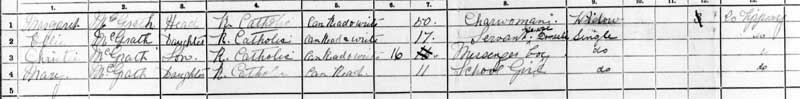 1. 2. 3. 4. 5. 6. 7. 8. 9. 10. 11. 12. 13.
1 Margaret McGrath Head R. Catholic Can Read & write 50. Charwoman Widow Co Tipperary
2 Effie McGrath Daughter R. Catholic Can Read & write 17. Servant Single do
3 Christy McGrath Son. R. Catholic Can Read & write 16 Messenger boy do
4 Mary McGrath Daughter R. Catholic Can Read. 11 School Girl do
5